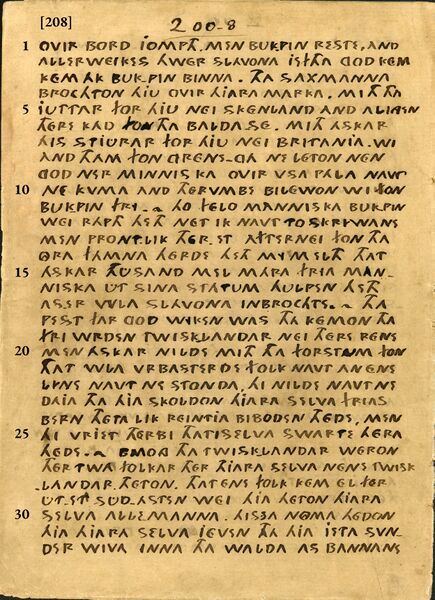 [208] 200-8
1 OVIR BORD JOMPTH, MEN BUKPIN RESTE, AND
ALLERWEIKES HWER SLAVONA IST THA DOD KEM
KEM AK BUK-PIN BINNA. THA SAXMANNA
BROCHTON HIU OVIR HIARA MARKA. MITH THA
5 JUTTAR FOR HIU NEI SKENLAND AND ALINGEN
THERE KAD FON THA BALDA-SE. MITH ASKAR
HIS STIURAR FOR HIU NEI BRITANIA. WI
AND THAM FON GRENE-GA NE LETON NEN
GOD NER MINNISKA OVIR VSA PALA NAVT
10 NE KVMA AND THERVMBE BILEWON WI FON
BUKPIN FRI. ~ HO FELO MANNISKA BUKPIN
WEI RAPTH HETH NET IK NAVT TO SKRIWANE
MEN PRONTLIK THER.ST AFTERNEI FON THA
ORA FAMNA HERDE HETH MY MELTH THAT
15 ASKAR THUSAND MEL MARA FRIA MAN-
NISKA UT SINA STATUM HULPEN HETH
AS.ER WLA SLAVONA INBROCHTE. ~ THA
PEST FAR GOD WIKEN WAS THA KEMON THA
FRI WRDEN TWISKLANDAR NEI THERE RENE
20 MEN ASKAR NILDE MITH THA FORSTUM FON
THAT WLA VRBASTERDE FOLK NAVT AN ENE
LINE NAVT NE STONDA. HI NILDE NAVT NE
DAJA THA HIA SKOLDON HIARA SELVA FRIAS
BERN HETA LIK REINTIA BIBODEN HEDE, MEN
25 HI VRIET THERBI THATI SELVA SWARTE HERA
HEDE. ~ EMONG THA TWISKLANDAR WERON
THER TWA FOLKAR THER HIARA SELVA NENE TWISK
-LANDAR HETON. THAT ENE FOLK KEM EL FER
UT ET SUD-ASTEN WEI HIA HETON HIARA
30 SELVA ALLEMANNA. THISSA NOMA HEDON
HIA HIARA SELVA JEVEN THA HIA JETA SUN-
DER WIVA INNA THA WALDA AS BANNANE